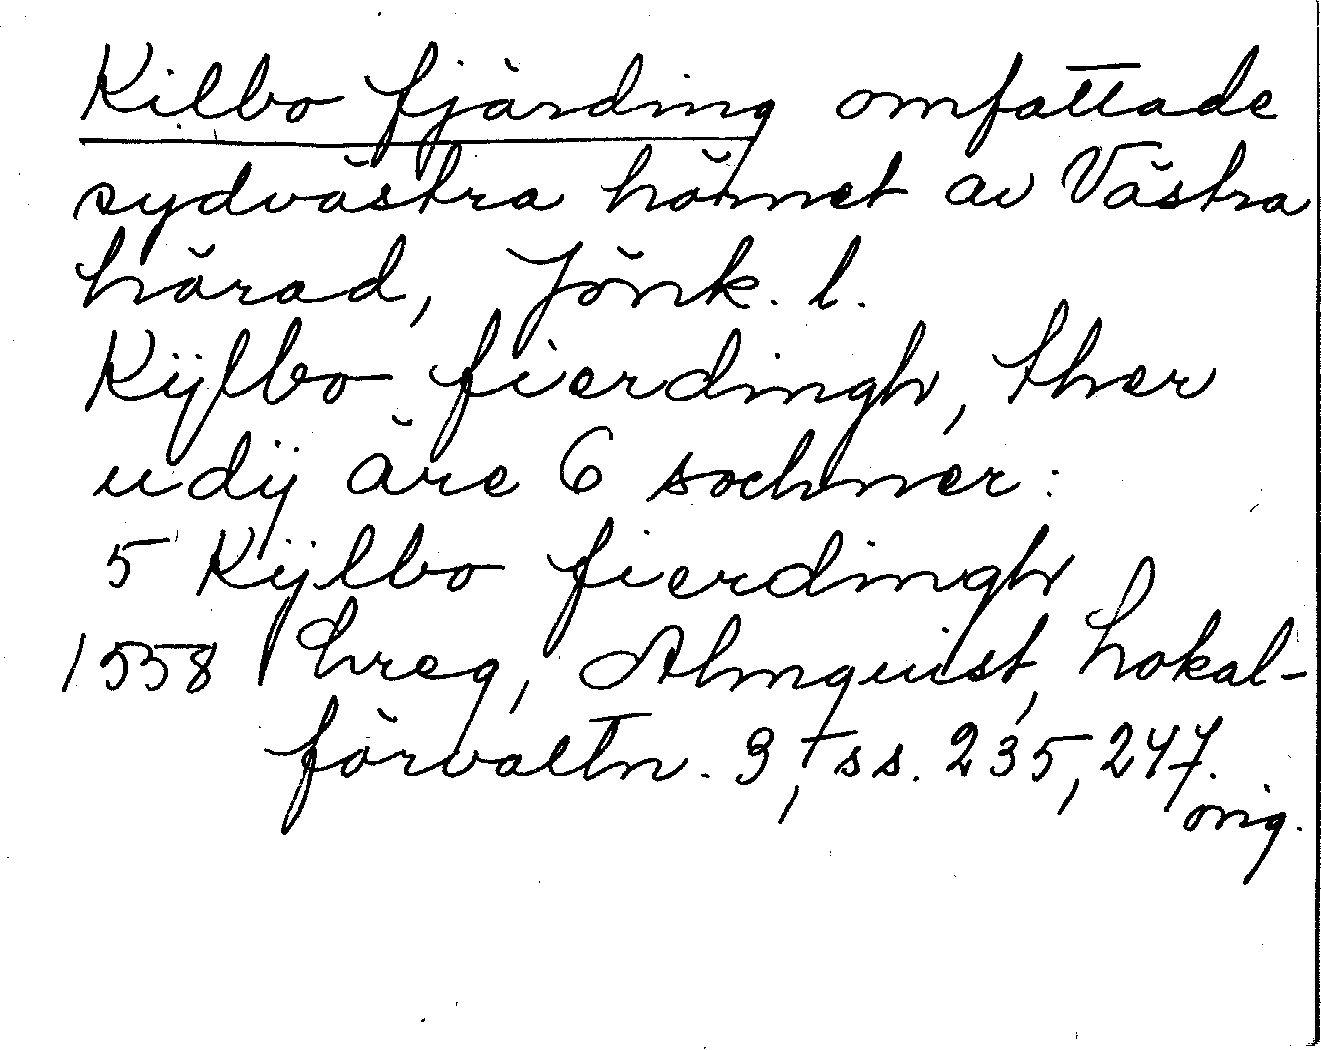 Kilbo fjärding omfattade
sydvästra hörnet av Västra
härad, Jönk. l.
Kÿlbo fierdingh, ther
udÿ äre 6 sochner:
5 Kÿlbo fierdingh
1558 hreg, Almquist, Lokal-
förvaltn. 3, ss. 235, 247.
orig.